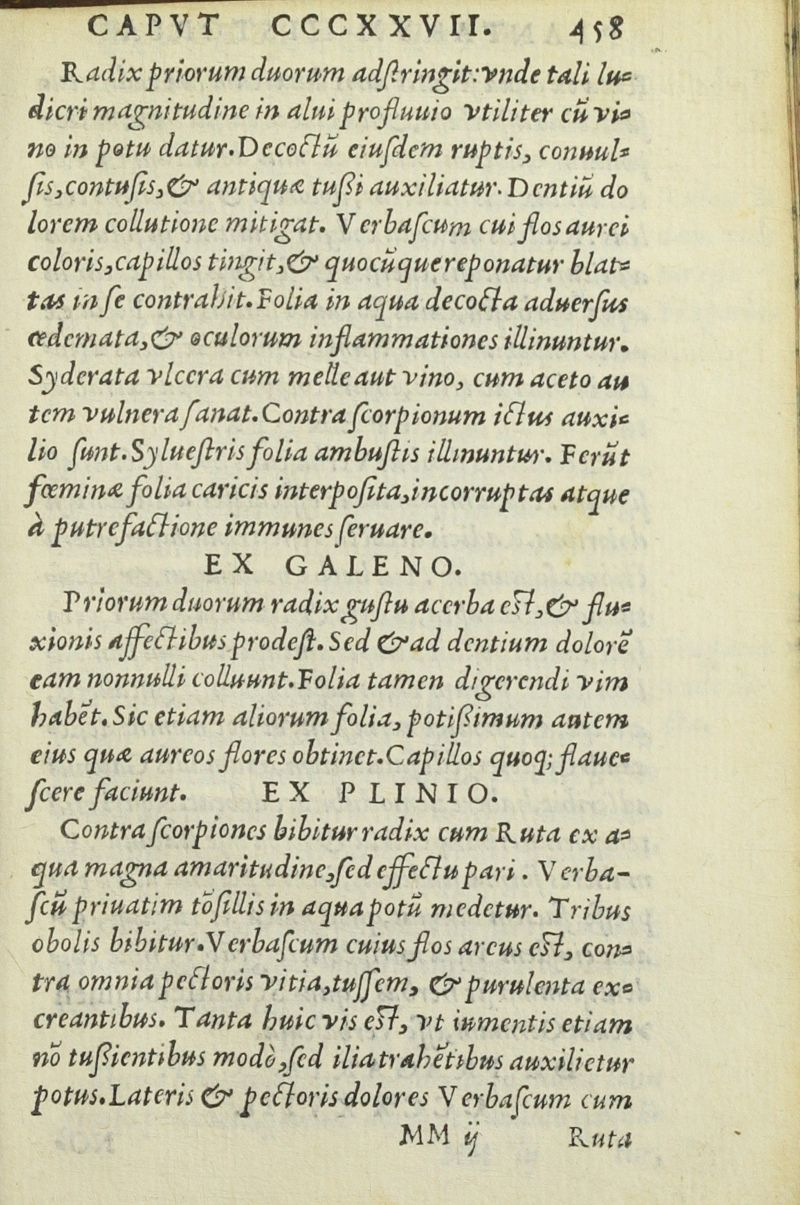 CAPVT CCCXXVII. 458
Radix priorum duorum adſtringit: vnde tali lu-
dicri magnitudine in alui profluuio vtiliter cũ vi-
no in potu datur. Decoctũ eiuſdem ruptis, conuul-
ſis, contuſis, & antiquæ tuſsi auxiliatur. Dentiũ do
lorem collutione mitigat. Verbaſcum cui flos aurei
coloris, capillos tingit, & quocũque reponatur blat-
tas in ſe contrahit. Folia in aqua decocta aduerſus
œdemata, & oculorum inflammationes illinuntur.
Syderata vlcera cum melle aut vino, cum aceto au
tem vulnera ſanat. Contra ſcorpionum ictus auxi-
lio ſunt. Sylueſtris folia ambuſtis illinuntur. Ferũt
fœminæ folia caricis interpoſita, incorruptas atque
à putrefactione immunes ſeruare.
EX GALENO.
Priorum duorum radix guſtu acerba eſt, & flu-
xionis affectibus prodeſt. Sed & ad dentium dolorẽ
eam nonnulli colluunt. Folia tamen digerendi vim
habẽt. Sic etiam aliorum folia, potiſsimum autem
eius quæ aureos flores obtinet. Capillos quoq; flaue-
ſcere faciunt. EX PLINIO.
Contra ſcorpiones bibitur radix cum Ruta ex a-
qua magna amaritudine, ſed effectu pari. Verba-
ſcũ priuatim tõſillis in aqua potũ medetur. Tribus
obolis bibitur. Verbaſcum cuius flos areus eſt, con-
tra omnia pectoris vitia, tuſſem, & purulenta ex-
creantibus. Tanta huic vis eſt, vt iumentis etiam
nõ tuſsientibus modò, ſed ilia trahẽtibus auxilietur
potus. Lateris & pectoris dolores Verbaſcum cum
MM ij Ruta